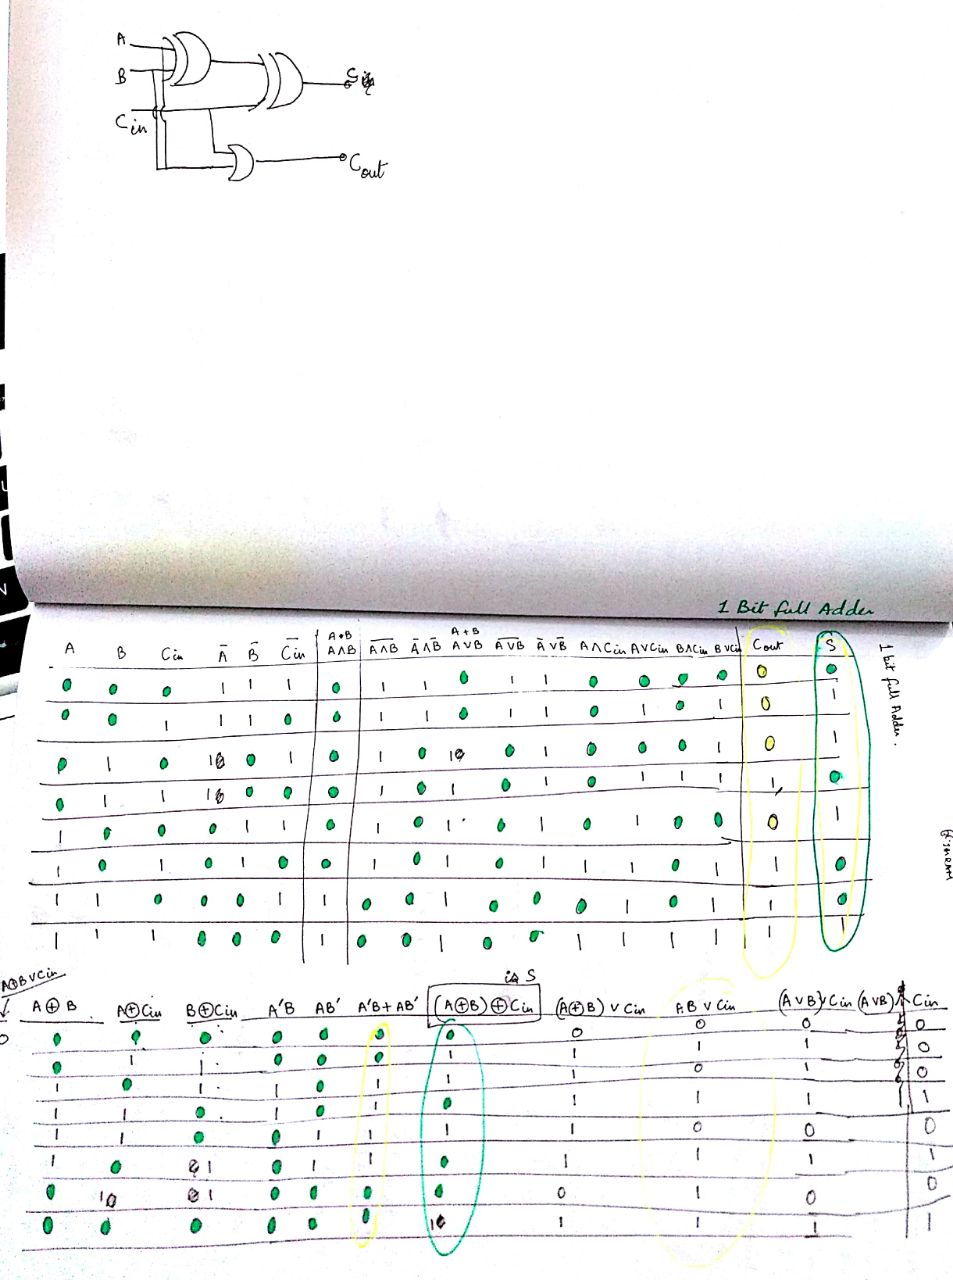 A
B
Cin
Cout
1 Bit full Adder
A B Cin Ā B̄ C̅i̅n̅ A•B A∧B A̅∧̅B̅ Ā∧B̄ A+B A∨B A̅∨̅B̅ Ā∨B̄ A∧Cin A∨Cin B∧Cin B∨Cin Cout S
0 0 0 1 1 1 0 1 1 0 1 1 0 0 0 0 0 0
0 0 1 1 1 0 0 1 1 0 1 1 0 1 0 1 0 1
0 1 0 1 0 1 0 1 0 1 0 1 0 0 0 1 0 1
0 1 1 1 0 0 0 1 0 1 0 1 0 1 1 1 1 0
1 0 0 0 1 1 0 1 0 1 0 1 0 1 0 0 0 1
1 0 1 0 1 0 0 1 0 1 0 1 1 1 0 1 1 0
1 1 0 0 0 1 1 0 0 1 0 0 0 1 0 1 1 0
1 1 1 0 0 0 1 0 0 1 0 0 1 1 1 1 1 1
1 bit full Adder.
A⊕B∨Cin
is S
A⊕B A⊕Cin B⊕Cin A'B AB' A'B+AB' (A⊕B)⊕Cin (A⊕B)∨Cin AB∨Cin (A∨B)∨Cin (A∨B) Cin
0 0 0 0 0 0 0 0 0 0 0
0 1 1 0 0 0 1 1 1 1 0
1 0 1 1 0 1 1 1 0 1 0
1 1 0 1 0 1 0 1 1 1 1
1 1 0 0 1 1 1 1 0 0 0
1 0 1 0 1 1 0 1 1 1 1
0 1 1 0 0 0 0 0 1 0 0
0 0 0 0 0 0 1 1 1 1 1